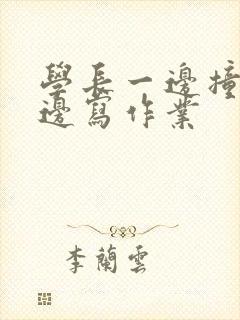 學長一邊撞
邊寫作業
李蘭雲